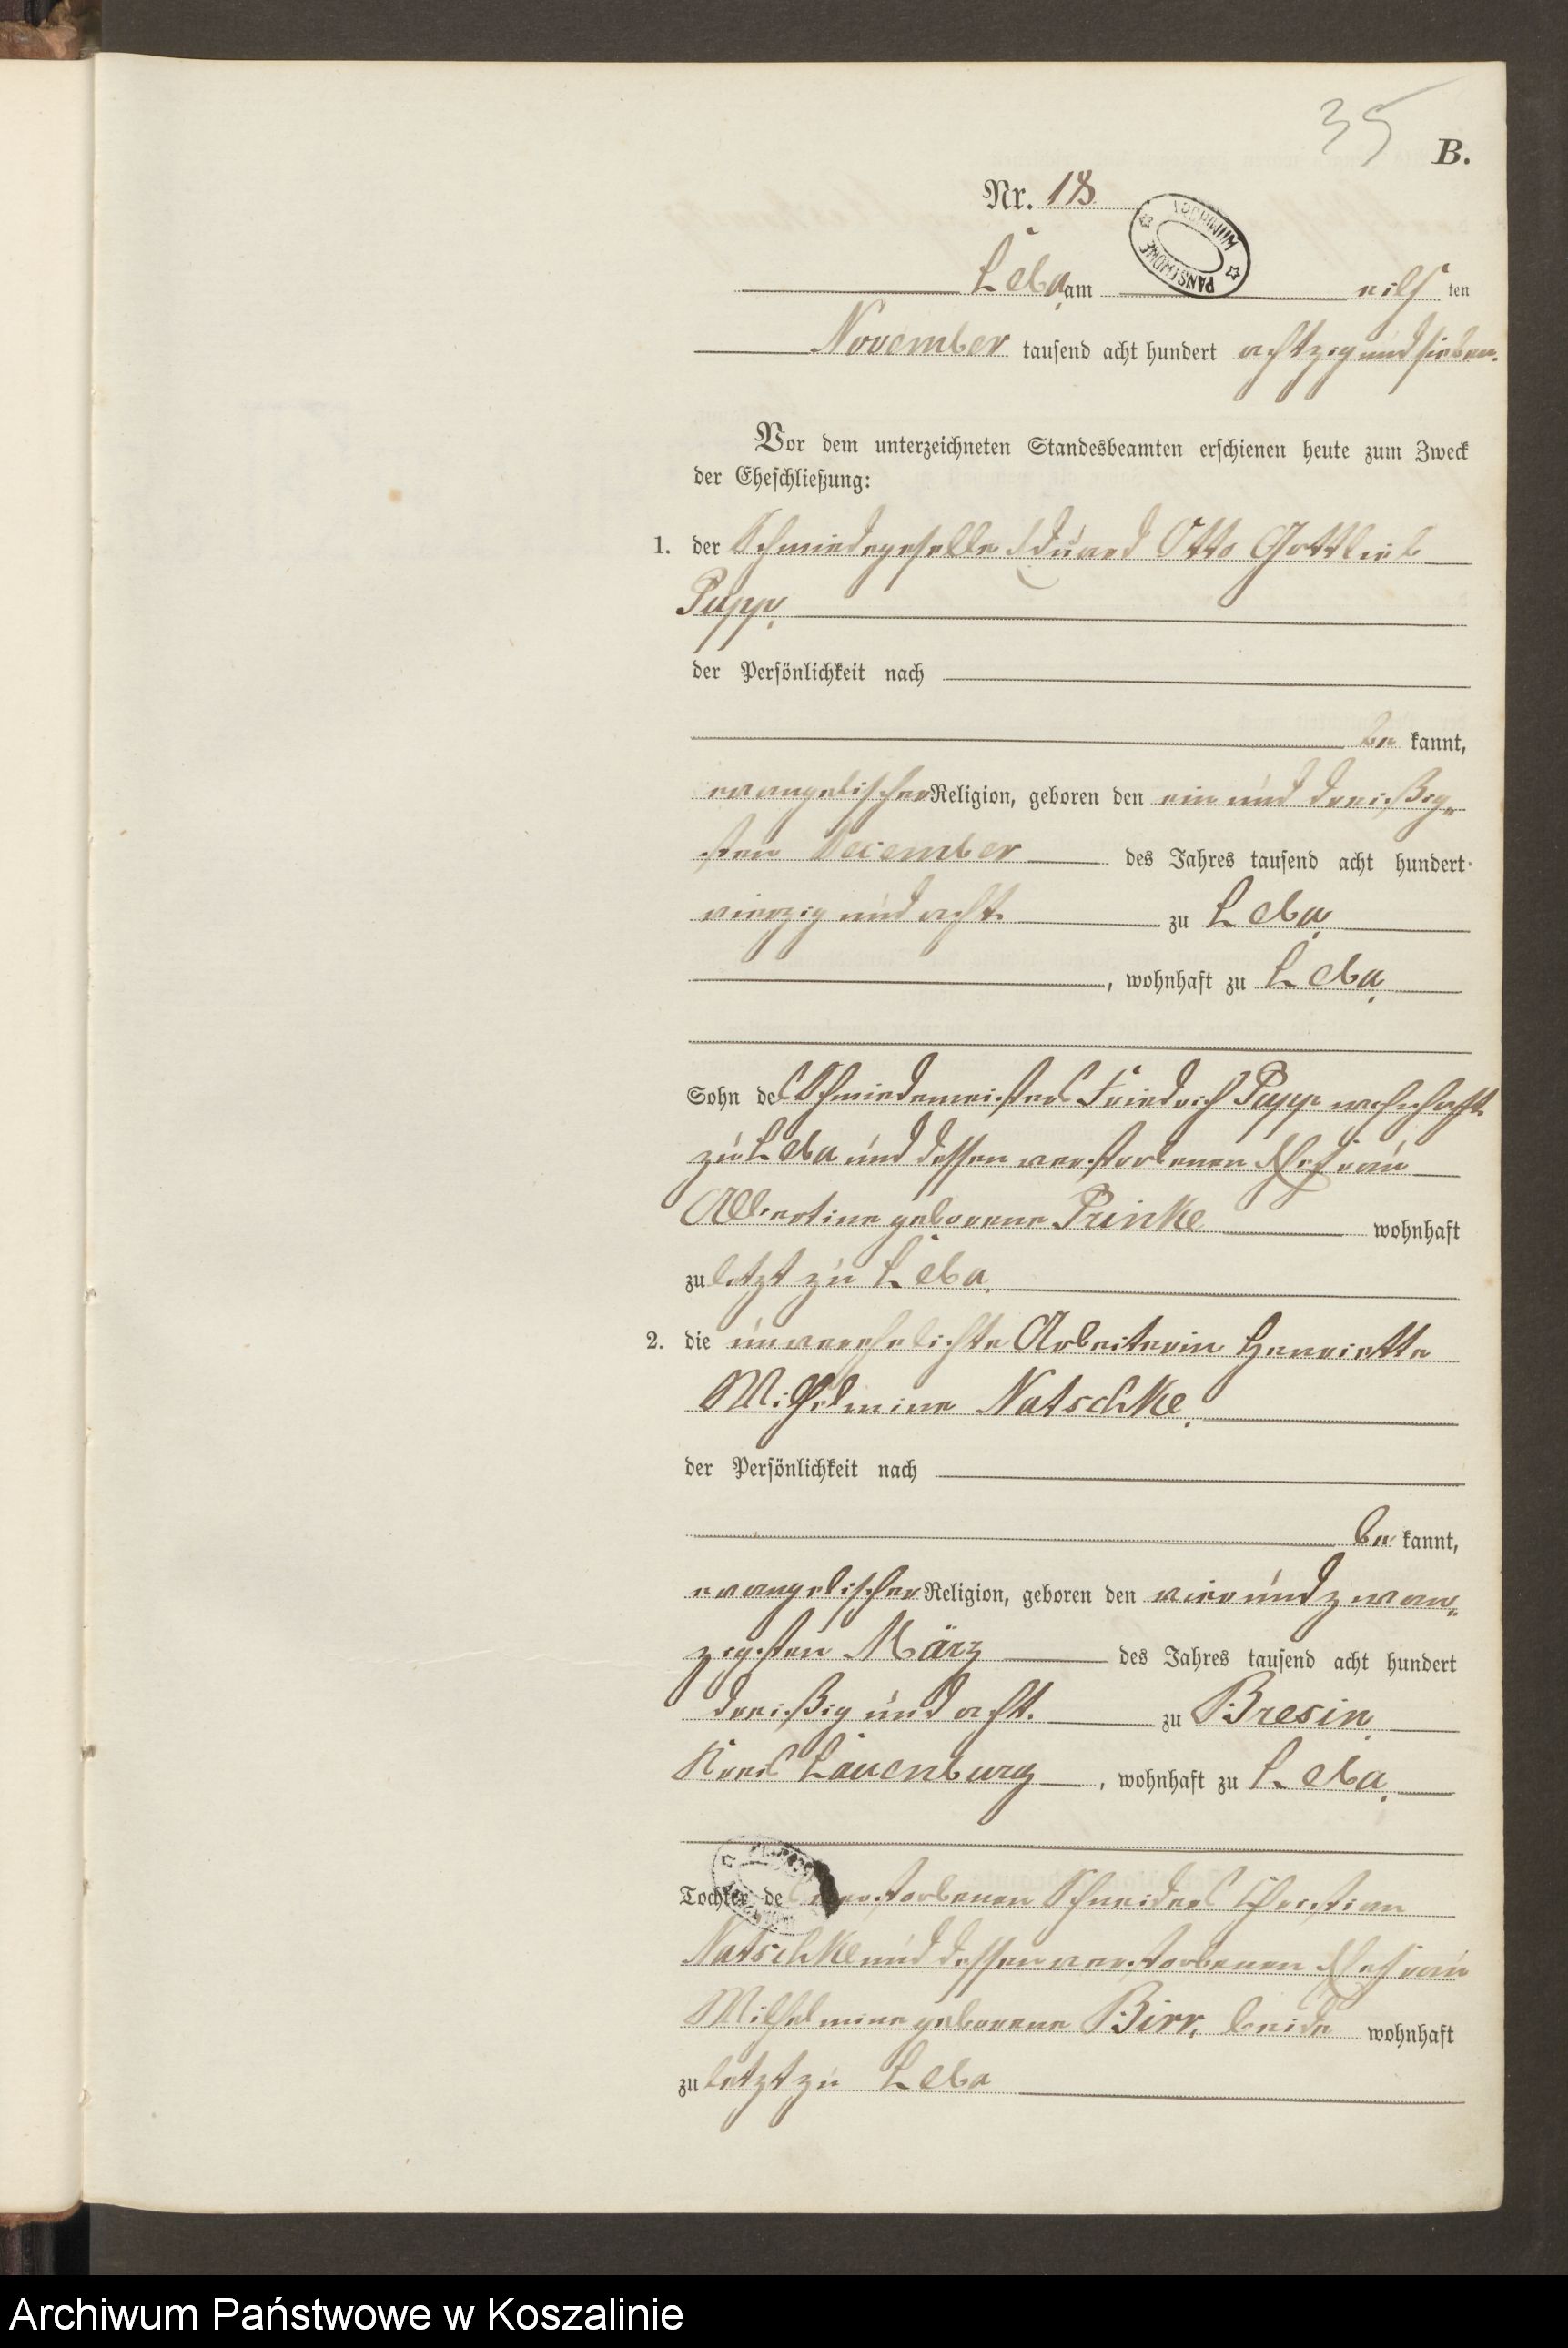 35
B.
Nr. 18
ARCHIWUM PAŃSTWOWE
Leba, am eilf ten
November tausend acht hundert achtzig und sieben.
Vor dem unterzeichneten Standesbeamten erschienen heute zum Zweck
der Eheschließung:
1. der Schmiedegeselle Eduard Otto Gottlieb
Papp,
der Persönlichkeit nach
be kannt,
evangelischer Religion, geboren den ein und dreißig-
sten December des Jahres tausend acht hundert
vierzig und acht zu Leba,
, wohnhaft zu Leba,
Sohn des Schmiedemeisters Friedrich Papp wohnhaft
zu Leba und dessen verstorbenen Ehefrau
Albertine geborene Prinke wohnhaft
zuletzt zu Leba,
2. die unverehelichte Arbeiterin Henriette
Wilhelmine Natschke,
der Persönlichkeit nach
be kannt,
evangelischer Religion, geboren den vier und zwan-
zigsten März des Jahres tausend acht hundert
dreißig und acht zu Bresin,
Kreis Lauenburg, wohnhaft zu Leba,
Tochter des verstorbenen Schneiders Christian
Natschke und dessen verstorbenen Ehefrau
Wilhelmine geborene Birr, beide wohnhaft
zuletzt zu Leba
Archiwum Państwowe w Koszalinie